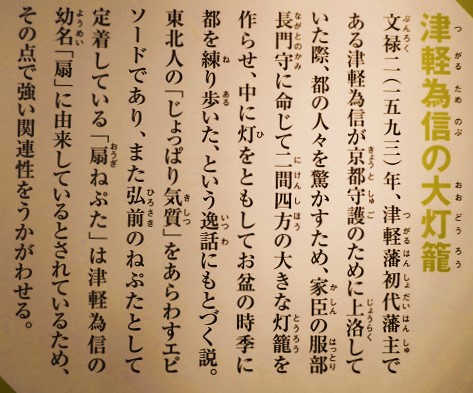 津軽為信の大灯籠
文禄二(一五九三)年、津軽藩初代藩主で
ある津軽為信が京都守護のために上洛して
いた際、都の人々を驚かすため、家臣の服部
長門守に命じて二間四方の大きな灯籠を
作らせ、中に灯をともしてお盆の時季に
都を練り歩いた、という逸話にもとづく説。
東北人の「じょっぱり気質」をあらわすエピ
ソードであり、また弘前のねぷたとして
定着している「扇ねぷた」は津軽為信の
幼名「扇」に由来しているとされているため、
その点で強い関連性をうかがわせる。